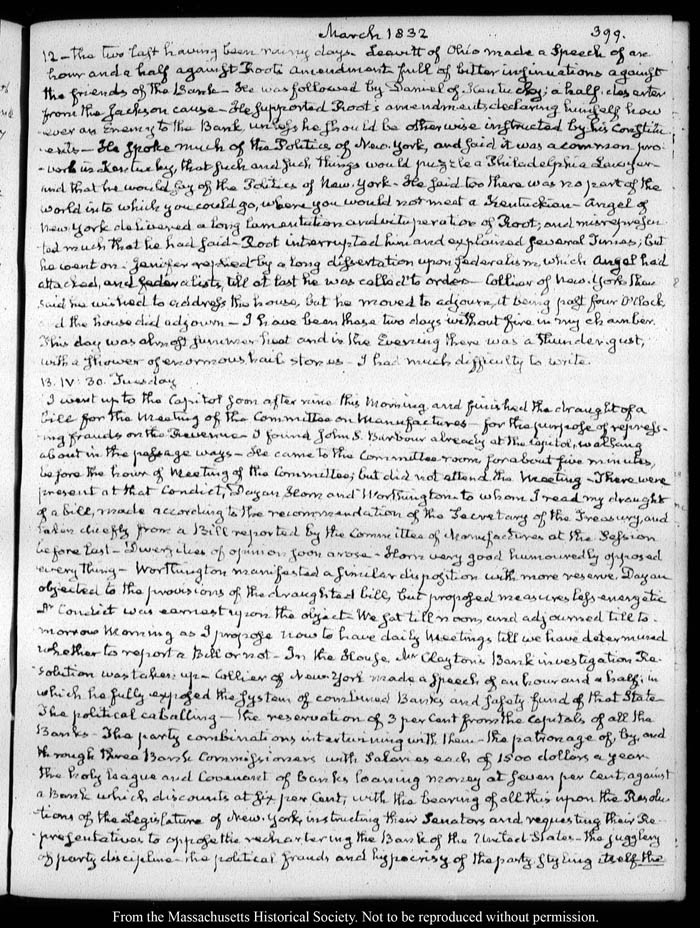 March 1832 399.
12 – the two last having been rainy days. Leavitt of Ohio made a Speech of an
hour and a half against Root's amendment full of bitter insinuations against
the friends of the Bank – He was followed by Daniel of Kentucky; a half deserter
from the Jackson cause – He supported Root's amendments, declaring himself how
ever an Enemy to the Bank, unless he should be otherwise instructed by his Constitu
ents – He spoke much of the Politics of New York, and said it was a common pro-
verb in Kentucky, that such and such things would puzzle a Philadelphia Lawyer
and that he would say of the Politics of New York – He said too there was no part of the
world into which you could go, where you would not meet a Kentuckian – Angel of
New York delivered a long lamentation and vituperation of Root; and misrepresen-
ted much that he had said – Root interrupted him and explained several Times; but
he went on – Jenifer replied by a long dissertation upon federalism, which Angel had
attacked, and federalists, till at last he was called to order – Collier of New York then
said he wished to address the house, but he moved to adjourn, it being past four O'Clock
and the house did adjourn – I have been these two days without fire in my chamber.
This day was almost summer heat and in the Evening there was a Thunder-gust,
with a shower of enormous hail stones – I had much difficulty to write.
13. IV: 30. Tuesday
I went up to the Capitol soon after nine this Morning, and finished the draught of a
bill for the Meeting of the Committee on Manufactures – for the purpose of repress-
ing frauds on the Revenue – I found John S. Barbour already at the Capitol, walking
about in the passage ways – He came to the Committee room for about five minutes,
before the hour of Meeting of the Committee; but did not attend the Meeting – There were
present at that Condict, Dayan Horn and Worthington – to whom I read my draught
of a bill, made according to the recommendation of the Secretary of the Treasury, and
taken chiefly from a Bill reported by the Committee of Manufactures at the Session
before last – Diversities of opinion soon arose – Horn very good humouredly opposed
every thing – Worthington manifested a similar disposition with more reserve. Dayan
objected to the provisions of the draughted bill, but proposed measures less energetic
Dr Condict was earnest upon the object – We sat till noon, and adjourned till to-
morrow Morning as I propose now to have daily Meetings till we have determined
whether to report a Bill or not – In the House, Mr Clayton's Bank investigation Re-
solution was taken up – Collier of New York made a Speech of an hour and a half; in
which he fully exposed the System of combined Banks and safety fund of that State
The political caballing – the reservation of 3 per Cent from the capitals of all the
Banks – The party combinations intertwining with them – the patronage of, by, and
through three Bank Commissioners with Salaries each of 1500 dollars a year
the holy league and Covenant of Banks loaning money at seven per Cent, against
a Bank which discounts at six per Cent; with the bearing of all this upon the Resolu-
tions of the Legislature of New York, instructing their Senators and requesting their Re-
presentatives to oppose the rechartering the Bank of the United States – the jugglery
of party discipline – the political frauds and hypocrisy of the party styling itself the
From the Massachusetts Historical Society. Not to be reproduced without permission.